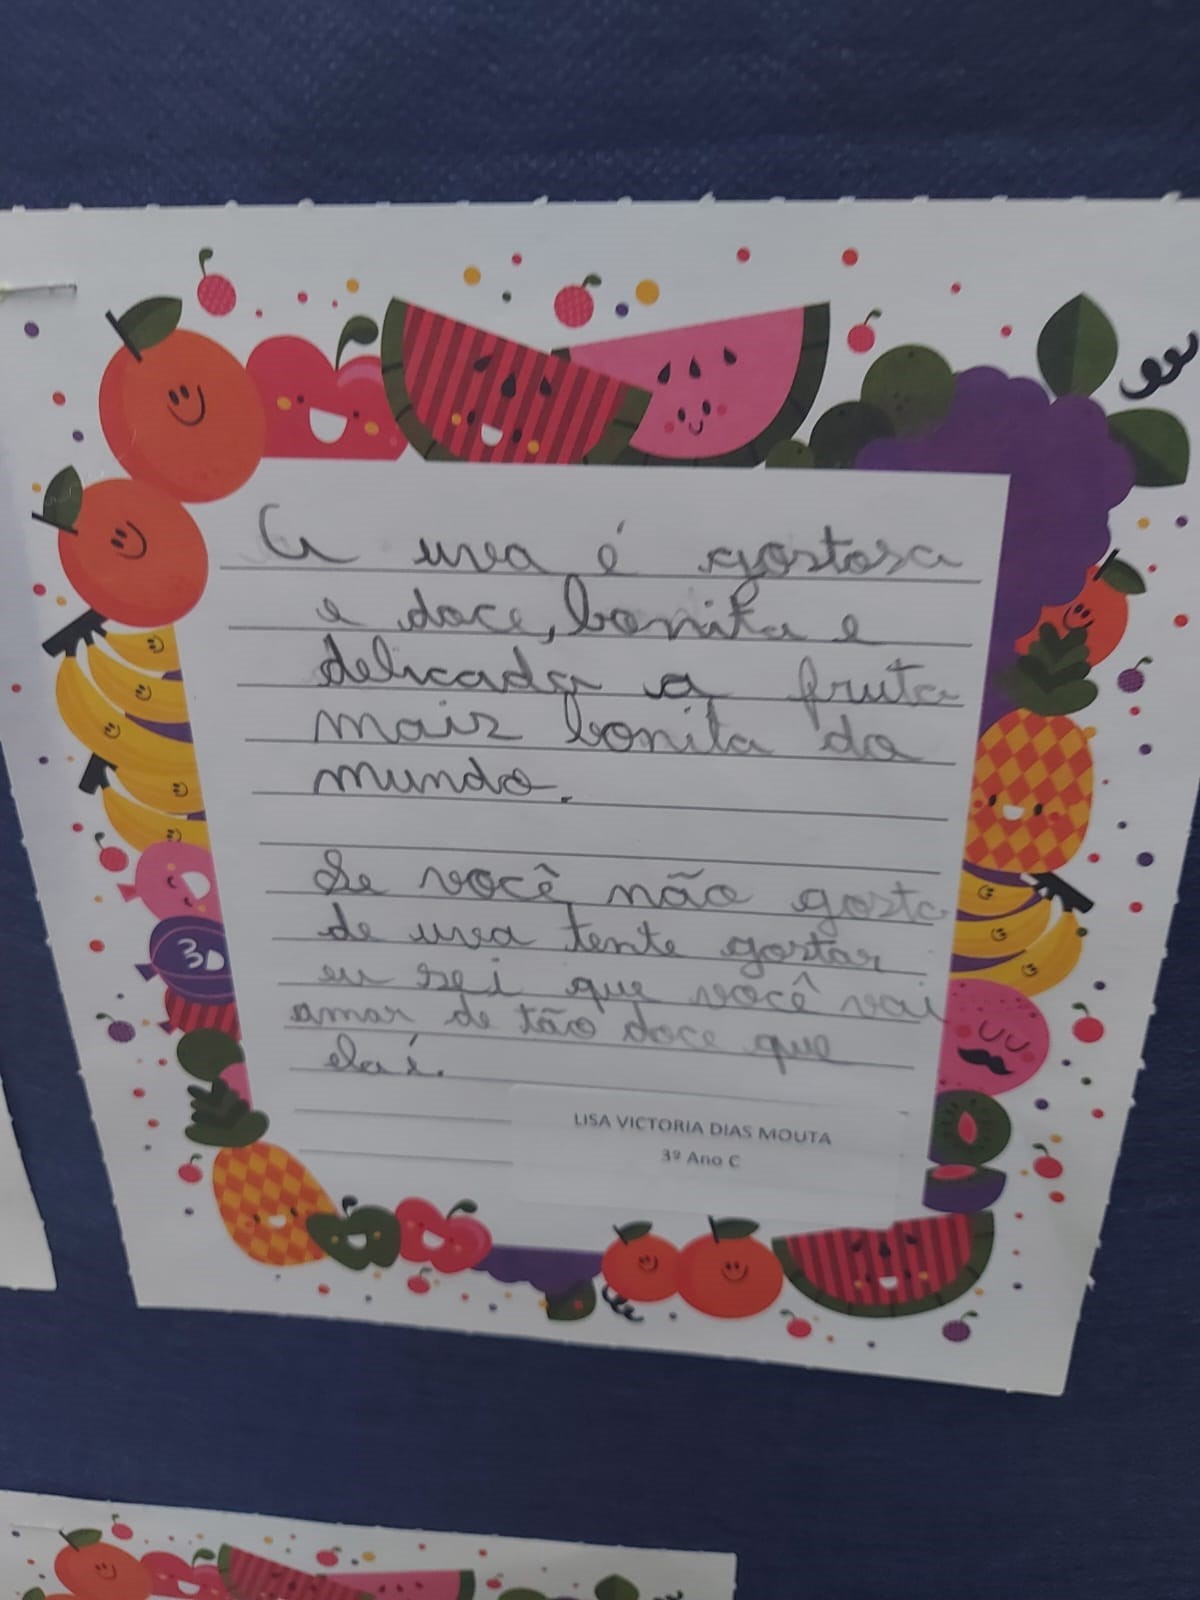 A uva é gostosa
e doce, bonita e
delicada a fruta
mais bonita do
mundo.
Se você não gosta
de uva tente gostar
eu sei que você vai
amar de tão doce que
ela é.
LISA VICTORIA DIAS MOUTA
3º Ano C